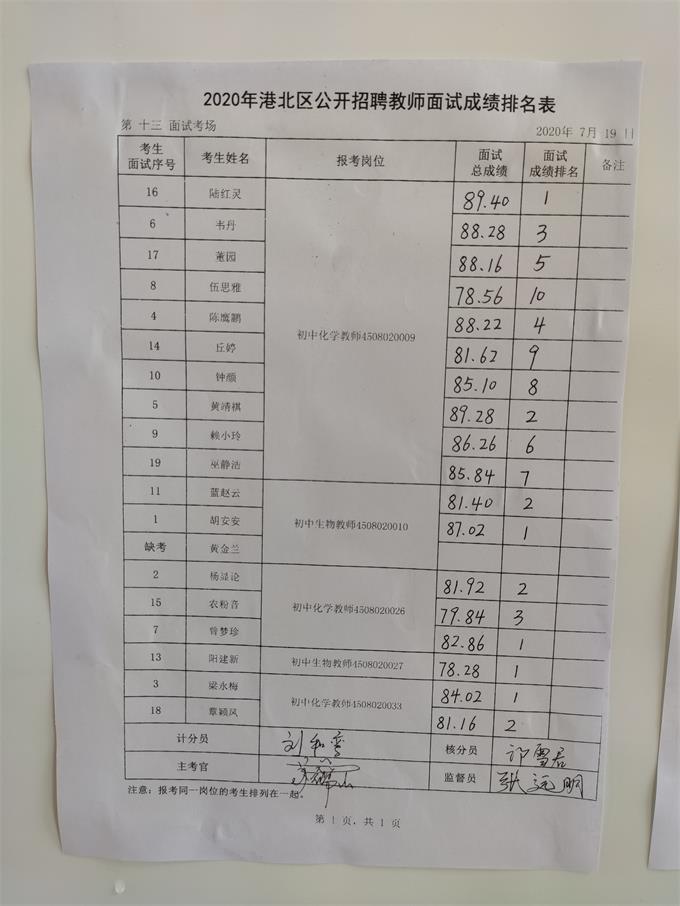 2020年港北区公开招聘教师面试成绩排名表
第 十三 面试考场 2020年 7月 19 日
考生面试序号 考生姓名 报考岗位 面试总成绩 面试成绩排名 备注
16 陆红灵 初中化学教师4508020009 89.40 1
6 韦丹 88.28 3
17 董园 88.16 5
8 伍思雅 78.56 10
4 陈鹰鹏 88.22 4
14 丘婷 81.62 9
10 钟颜 85.10 8
5 黄靖祺 89.28 2
9 赖小玲 86.26 6
19 巫静洁 85.84 7
11 蓝赵云 初中生物教师4508020010 81.40 2
1 胡安安 87.02 1
缺考 黄金兰
2 杨显论 初中化学教师4508020026 81.92 2
15 农粉音 79.84 3
7 曾梦珍 82.86 1
13 阳建新 初中生物教师4508020027 78.28 1
3 梁永梅 初中化学教师4508020033 84.02 1
18 覃颖凤 81.16 2
计分员 核分员
主考官 监督员 张远明
注意：报考同一岗位的考生排列在一起。
第 1 页，共 1 页